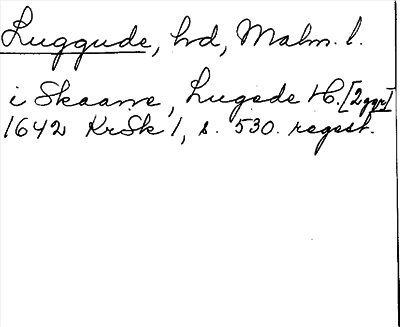 Luggude, hd, Malm. l.
i Skaane, Lugede H. [2ggr]
1642 KrSk 1, s. 530. regest.